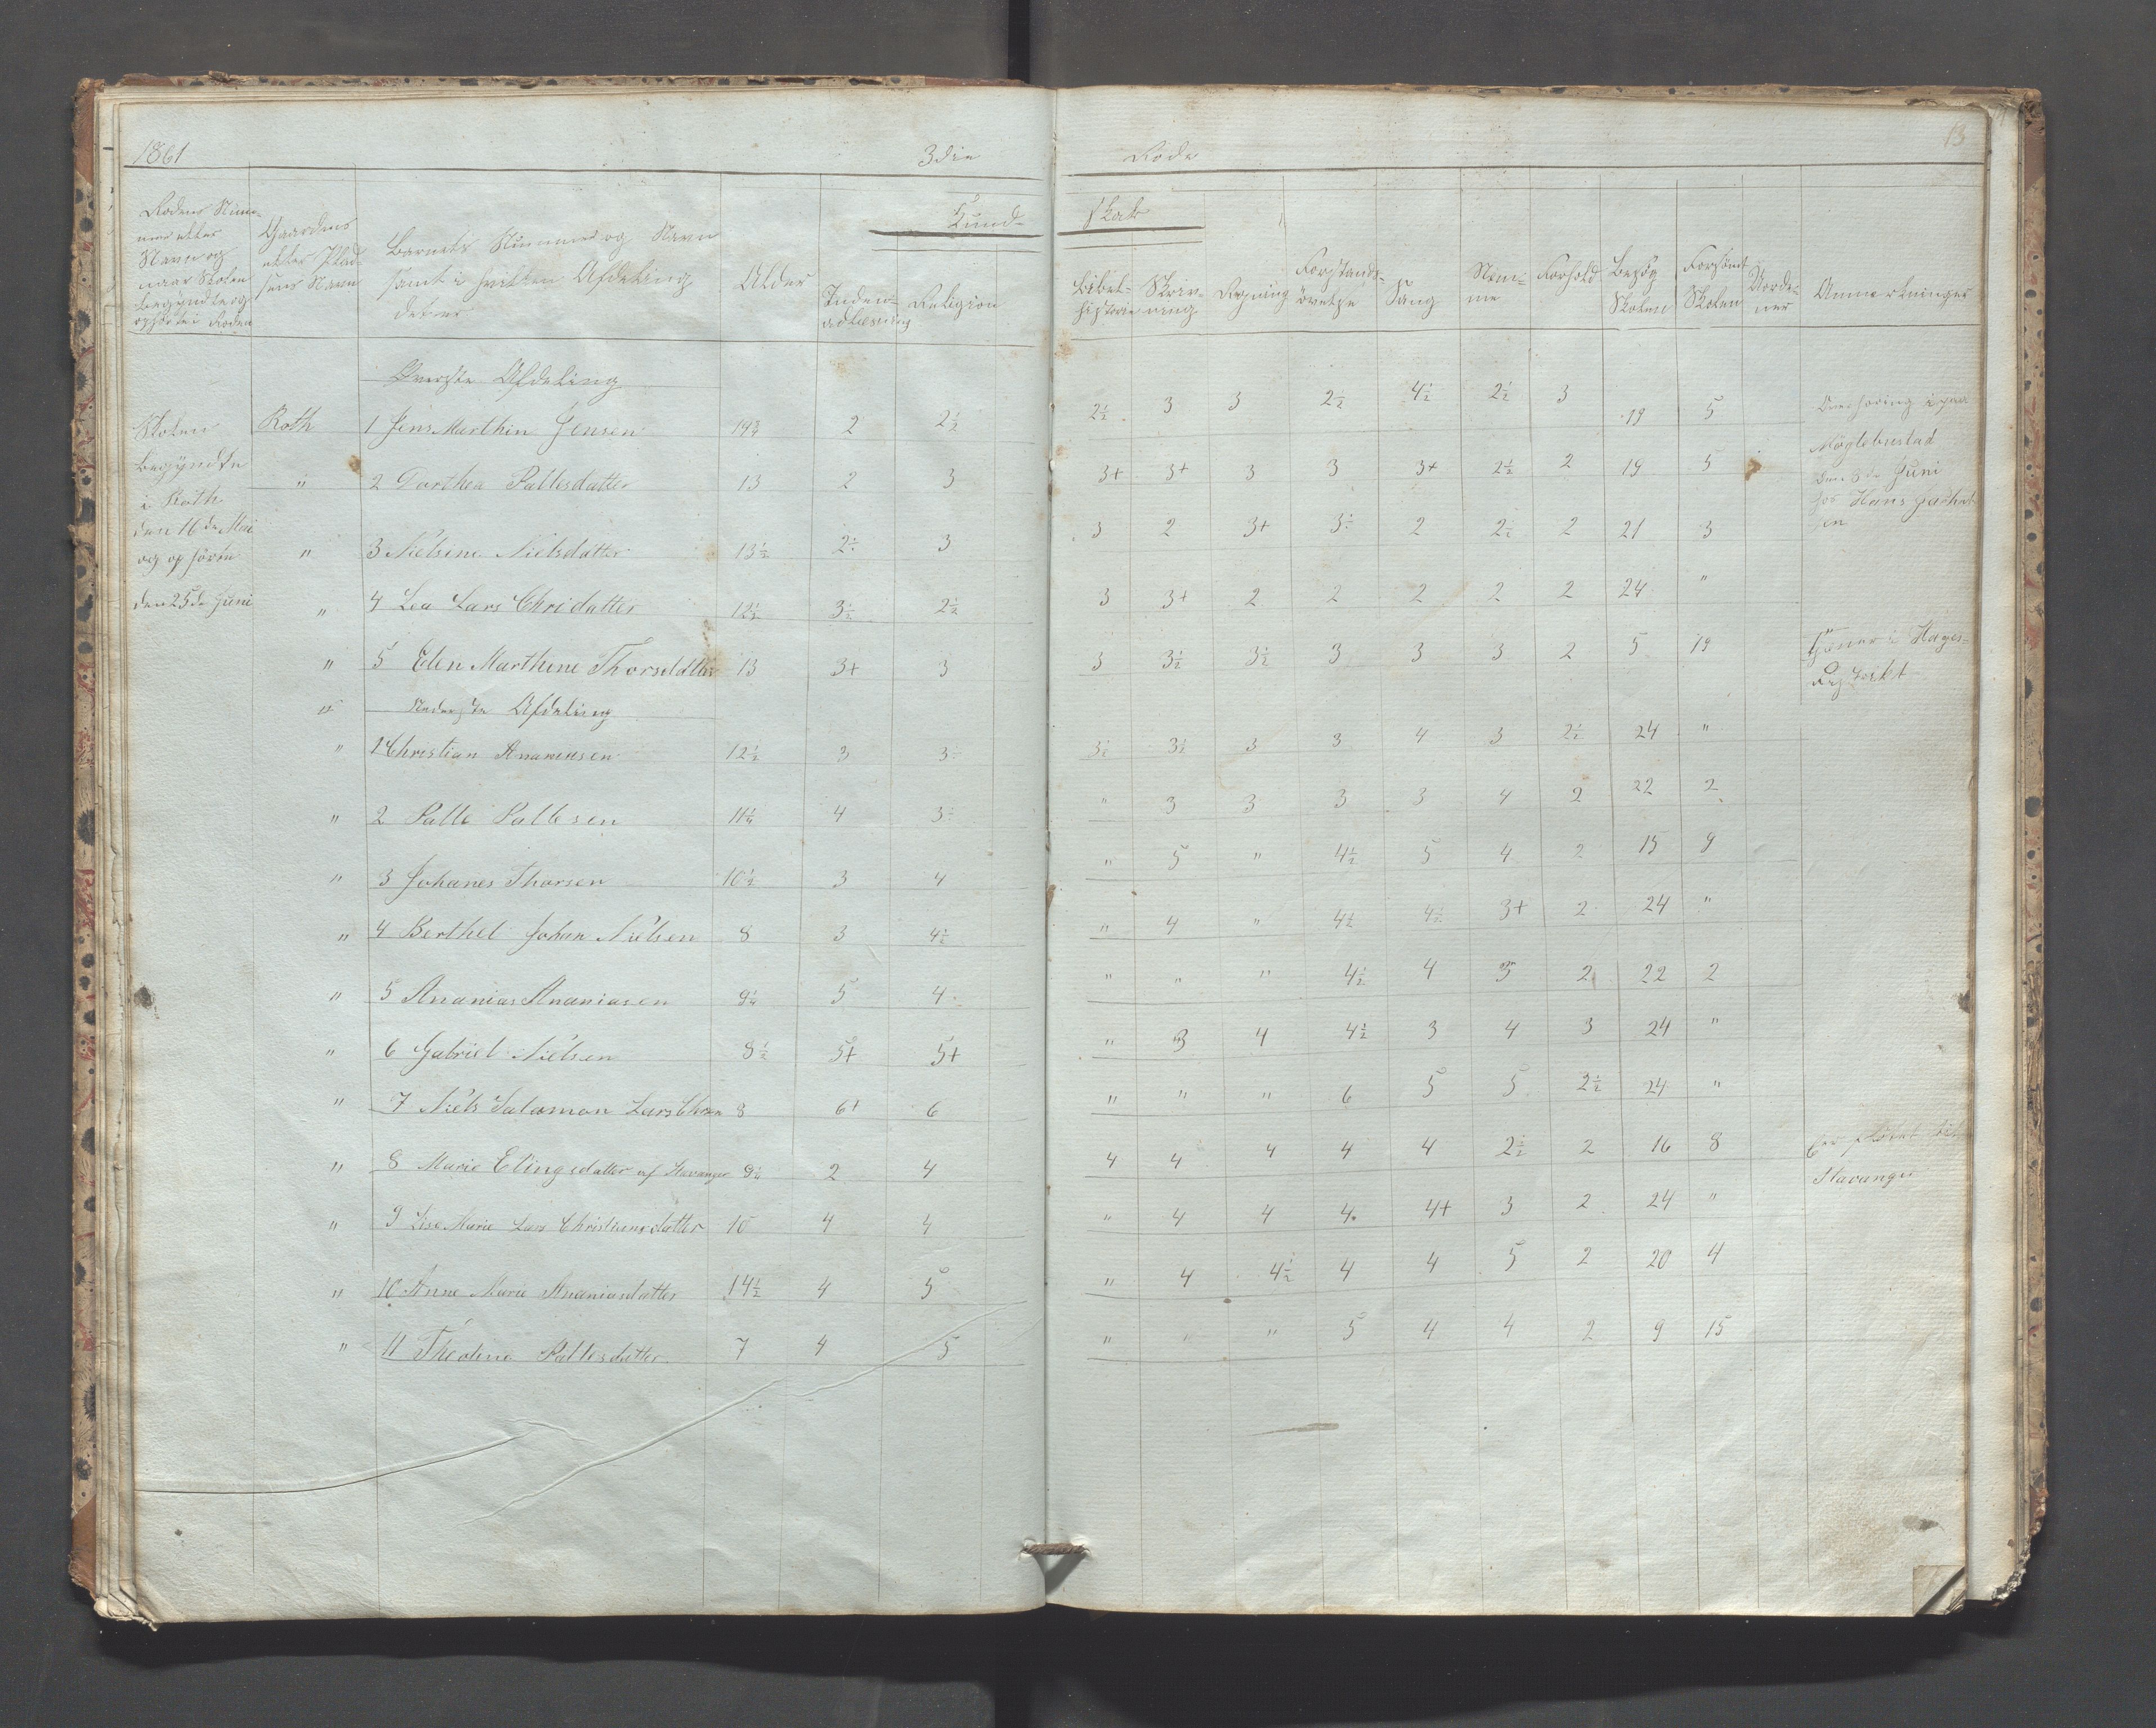 1861 3die Rode 13
Rodens Num-
mer eller
Navn og
naar Skolen
begyndte og
ophørte i Roden
Gaardens
eller Plad-
sens Navn
Barnets Nummer og Navn
samt i hvilken Afdeling
det er
Alder
Kund-
skab
Inden-
adlæsning
Religion
Bibel-
historie
Skriv-
ning
Regning
Forstands-
øvelse
Sang
Nem-
me
Forhold
Besøg
Skolen
Forsømt
Skolen
Anmærkninger
Øverste Afdeling
Skolen
begyndte
i Roth
den 16de Mai
og ophørte
den 25de Juni
Roth 1 Jens Marthin Jensen 2 2½ 2½ 3 3 2½ 4½ 2½ 3 19 5
" 2 Dorthea Pallesdatter 13 2 3 3+ 3+ 3 3 3+ 2½ 2 19 5
" 3 Nielsine Nielsdatter 13½ 2÷ 3 3 2 3+ 3÷ 2 2½ 2 21 3
" 4 Lea Lars Chridatter 12½ 3½ 2½ 3 3+ 2 2 2 2 2 24 "
" 5 Elen Marthine Thorsdatter 13 3+ 3 3 3½ 3½ 3 3 3 2 5 19
Møglebustad
den 3de Juni
hos Hans
Tjener i
" Nederste Afdeling
" 1 Christian Ananiasen 12½ 3 3÷ 3½ 3½ 3 3 4 3 2½ 24 "
" 2 Palle Pallesen 11¼ 4 3÷ " 3 3 3 3 4 2 22 2
" 3 Johanes Thorsen 10½ 3 4 " 5 " 4½ 5 4 2 15 9
" 4 Berthel Johan Nielsen 8 3 4½ " 4 " 4½ 4½ 3+ 2 24 "
" 5 Ananias Ananiasen 9¼ 5 4 " " " 4½ 4 3 2 22 2
" 6 Gabriel Nielsen 8½ 5+ 5+ " 3 4 4½ 3 4 3 24 "
" 7 Niels Salamon Lars Chrsen 8 6+ 6 " " " 6 5 5 2½ 24 "
" 8 Marie Elingsdatter af Stavanger 9¼ 2 4 4 4 4 4 4 2½ 2 16 8 Er flyttet til
Stavanger
" 9 Lise Marie Lars Christiansdatter 10 4 4 " 4 4 4 4+ 3 2 24 "
" 10 Anne Marie Ananiasdatter 14½ 4 5 " 4 4½ 4 4 5 2 20 4
" 11 Theoline Pallesdatter 7 4 5 " " " 5 4 4 2 9 15